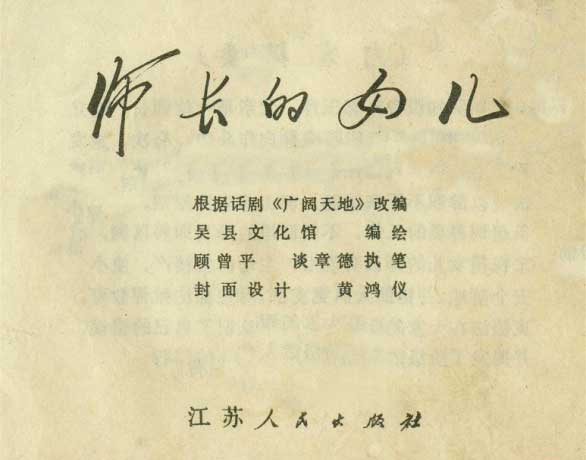 师长的女儿
根据话剧《广阔天地》改编
吴县文化馆 编绘
顾曾平 谈章德执笔
封面设计 黄鸿仪
江苏人民出版社